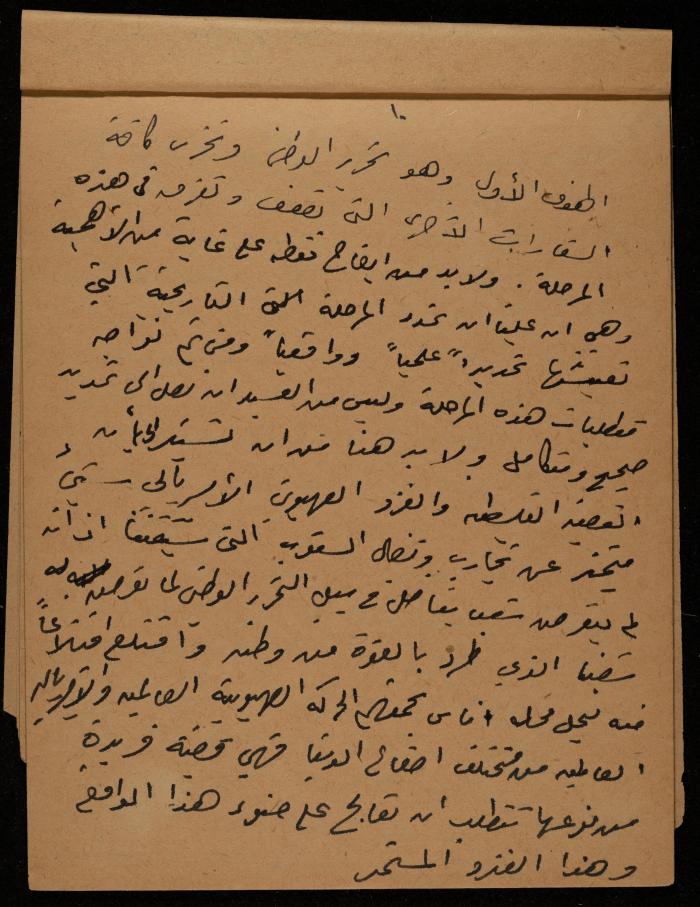 ١٠
الهدف الأول وهو تحرير الوطن وتخزن كافة
الشعارات الأخرى التي تضعف وتفرق في هذه
المرحلة . ولا بد من ايضاح نقطه على غاية من الأهمية
وهي ان علينا ان نحدد المرحلة التاريخية التي
نعيشها تحديداً علمياً وواقعياً ومن ثم نواجه
متطلبات هذه المرحلة وليس من العسير ان نصل الى تحديد
صحيح ومتكامل ولا بد هنا من ان
القضية الفلسطينيه والغزو الصهيوني الأمبريالي شيء
متميز عن تجارب ونضال الشعوب التي سبقتنا اذ انه
لم يتعرض شعب يناضل في سبيل التحرر الوطني لما تعرض له
شعبنا الذي طرد بالقوة من وطنه واقتلع اقتلاعاً
منه ليحل محله اناس تجمعهم الحركه الصهيونية العالميه والامبرياليه
العالميه من مختلف اصقاع الدنيا فهي قضية فريدة
من نوعها تتطلب ان تعالج على ضوء هذا الواقع
وهذا الغزو المستمر